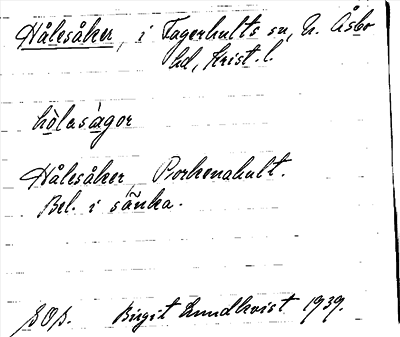 Hålesåker, i Fagerhults sn, N. Åsbo
hd, Krist. l.
hòlasàgor
Hålesåker Porkenahult.
Bel. i sänka.
Birgit Lundkvist 1939.